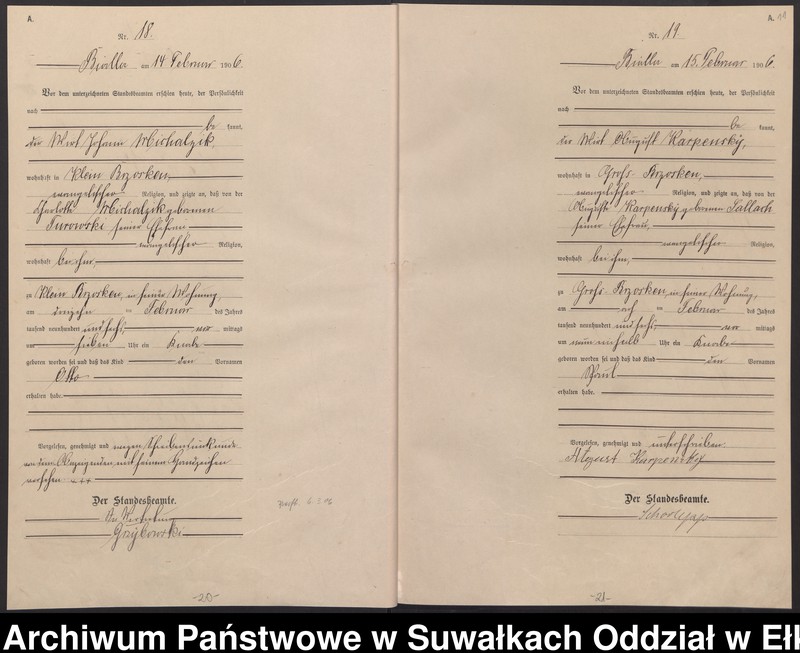 A.
Nr. 18.
Bialla am 14 Februar 1906.
Vor dem unterzeichneten Standesbeamten erschien heute, der Persönlichkeit
nach
be kannt,
der Wirt Johann Michalzik,
wohnhaft in Klein Brzosken,
evangelischer Religion, und zeigte an, daß von der
Charlotte Michalzik geborenen
Turowski seiner Ehefrau
evangelischer Religion,
wohnhaft bei ihm,
zu Klein Brzosken, in seiner Wohnung,
am Februar des Jahres
tausend neunhundert und sechs, vor mittags
um sieben Uhr ein Knabe
geboren worden sei und daß das Kind den Vornamen
Otto
erhalten habe.
Vorgelesen, genehmigt und wegen Schreibensunkunde
von dem Anzeigenden mit seinem Handzeichen
versehen +++
Der Standesbeamte.
In Vertretung
Grzybowski
-20-
A. 11
Nr. 19
Bialla am 15. Februar 1906.
Vor dem unterzeichneten Standesbeamten erschien heute, der Persönlichkeit
nach
be kannt,
der Wirt August Karpensky,
wohnhaft in Groß-Brzosken,
evangelischer Religion, und zeigte an, daß von der
Auguste Karpensky geborenen Sallach
seiner Ehefrau,
evangelischer Religion,
wohnhaft bei ihm,
zu Groß-Brzosken, in seiner Wohnung,
am acht Februar des Jahres
tausend neunhundert und sechs, vor mittags
um neun einhalb Uhr ein Knabe
geboren worden sei und daß das Kind den Vornamen
Paul
erhalten habe.
Vorgelesen, genehmigt und unterschrieben
August Karpensky
Der Standesbeamte.
-21-
Archiwum Państwowe w Suwałkach Oddział w Ełk